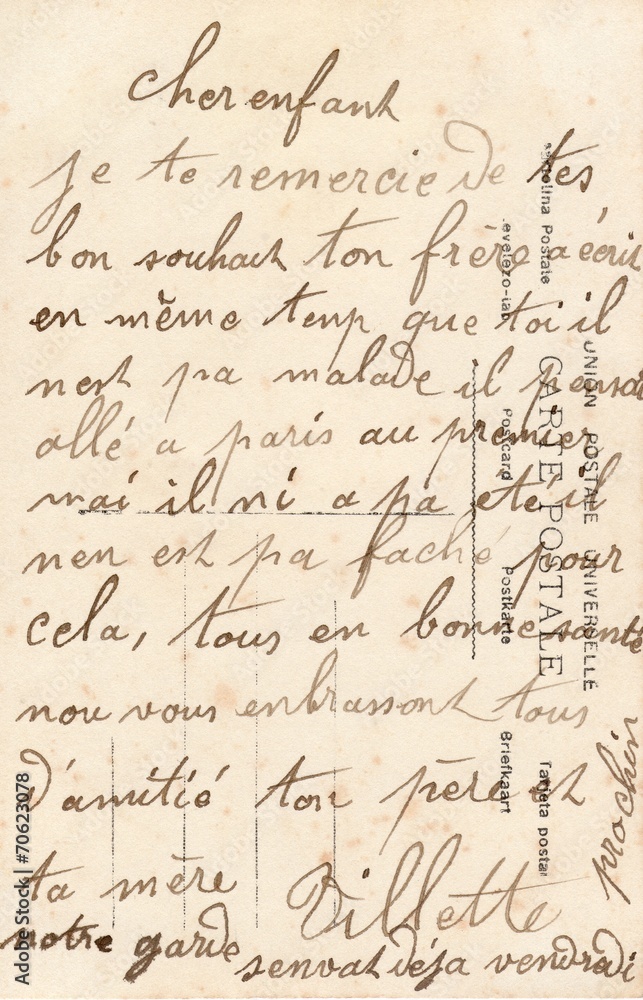 cher enfant
je te remercie de tes
bon souhait ton frère a écrit
en même temp que toi il
nest pa malade il pensai
allé a paris au premier
mai il ni a pa eté il
nen est pa faché pour
cela, tous en bonne santé
nou vous enbrassont tous
d'amitié ton père et
ta mère Villette
notre garde
senvat déja vendredi
prochin
UNION POSTALE UNIVERSELLE
CARTE POSTALE
Postale
Tarjeta postal
Levelezo-Lap
Postcard
Postkarte
Briefkaart
Adobe Stock | #70623078